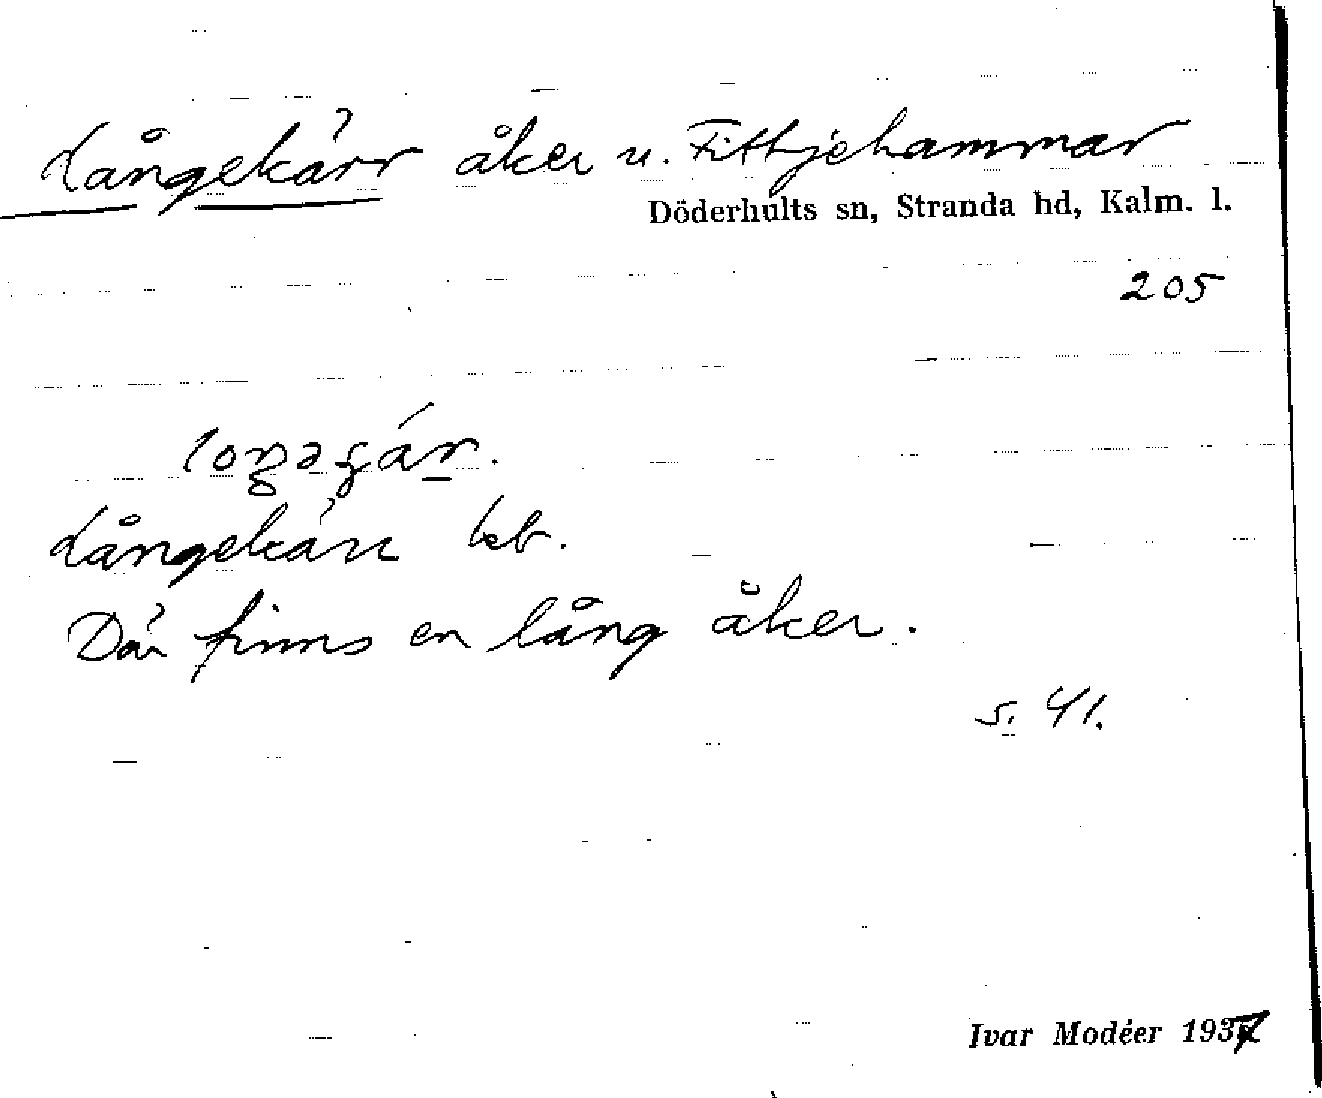 Långekärr åker u. Fittjehammar
Döderhults sn, Stranda hd, Kalm. l.
205
Långekärr
Där finns en lång åker.
s. 41.
Ivar Modéer 1937